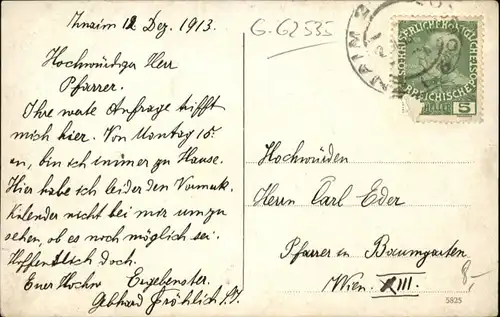 Znaim 12 Dez. 1913.
Hochwürdiger Herr
Pfarrer.
Ihre werte Anfrage trifft
mich hier. Von Montag 15.
an, bin ich immer zu Hause.
Hier habe ich leider den
Kalender nicht bei mir um zu
sehen, ob es noch möglich sei.
Hoffentlich doch.
Euer Hochw Ergebenster.
Gebhard Fröhlich S.J.
G-G2535
ZNAIM 2
KAISERLICHE KÖNIGLICHE ÖSTERREICHISCHE POST
HELLER
5
Hochwürden
Herrn Carl Eder
Pfarrer in Baumgarten
Wien. XIII.
8,-
5825